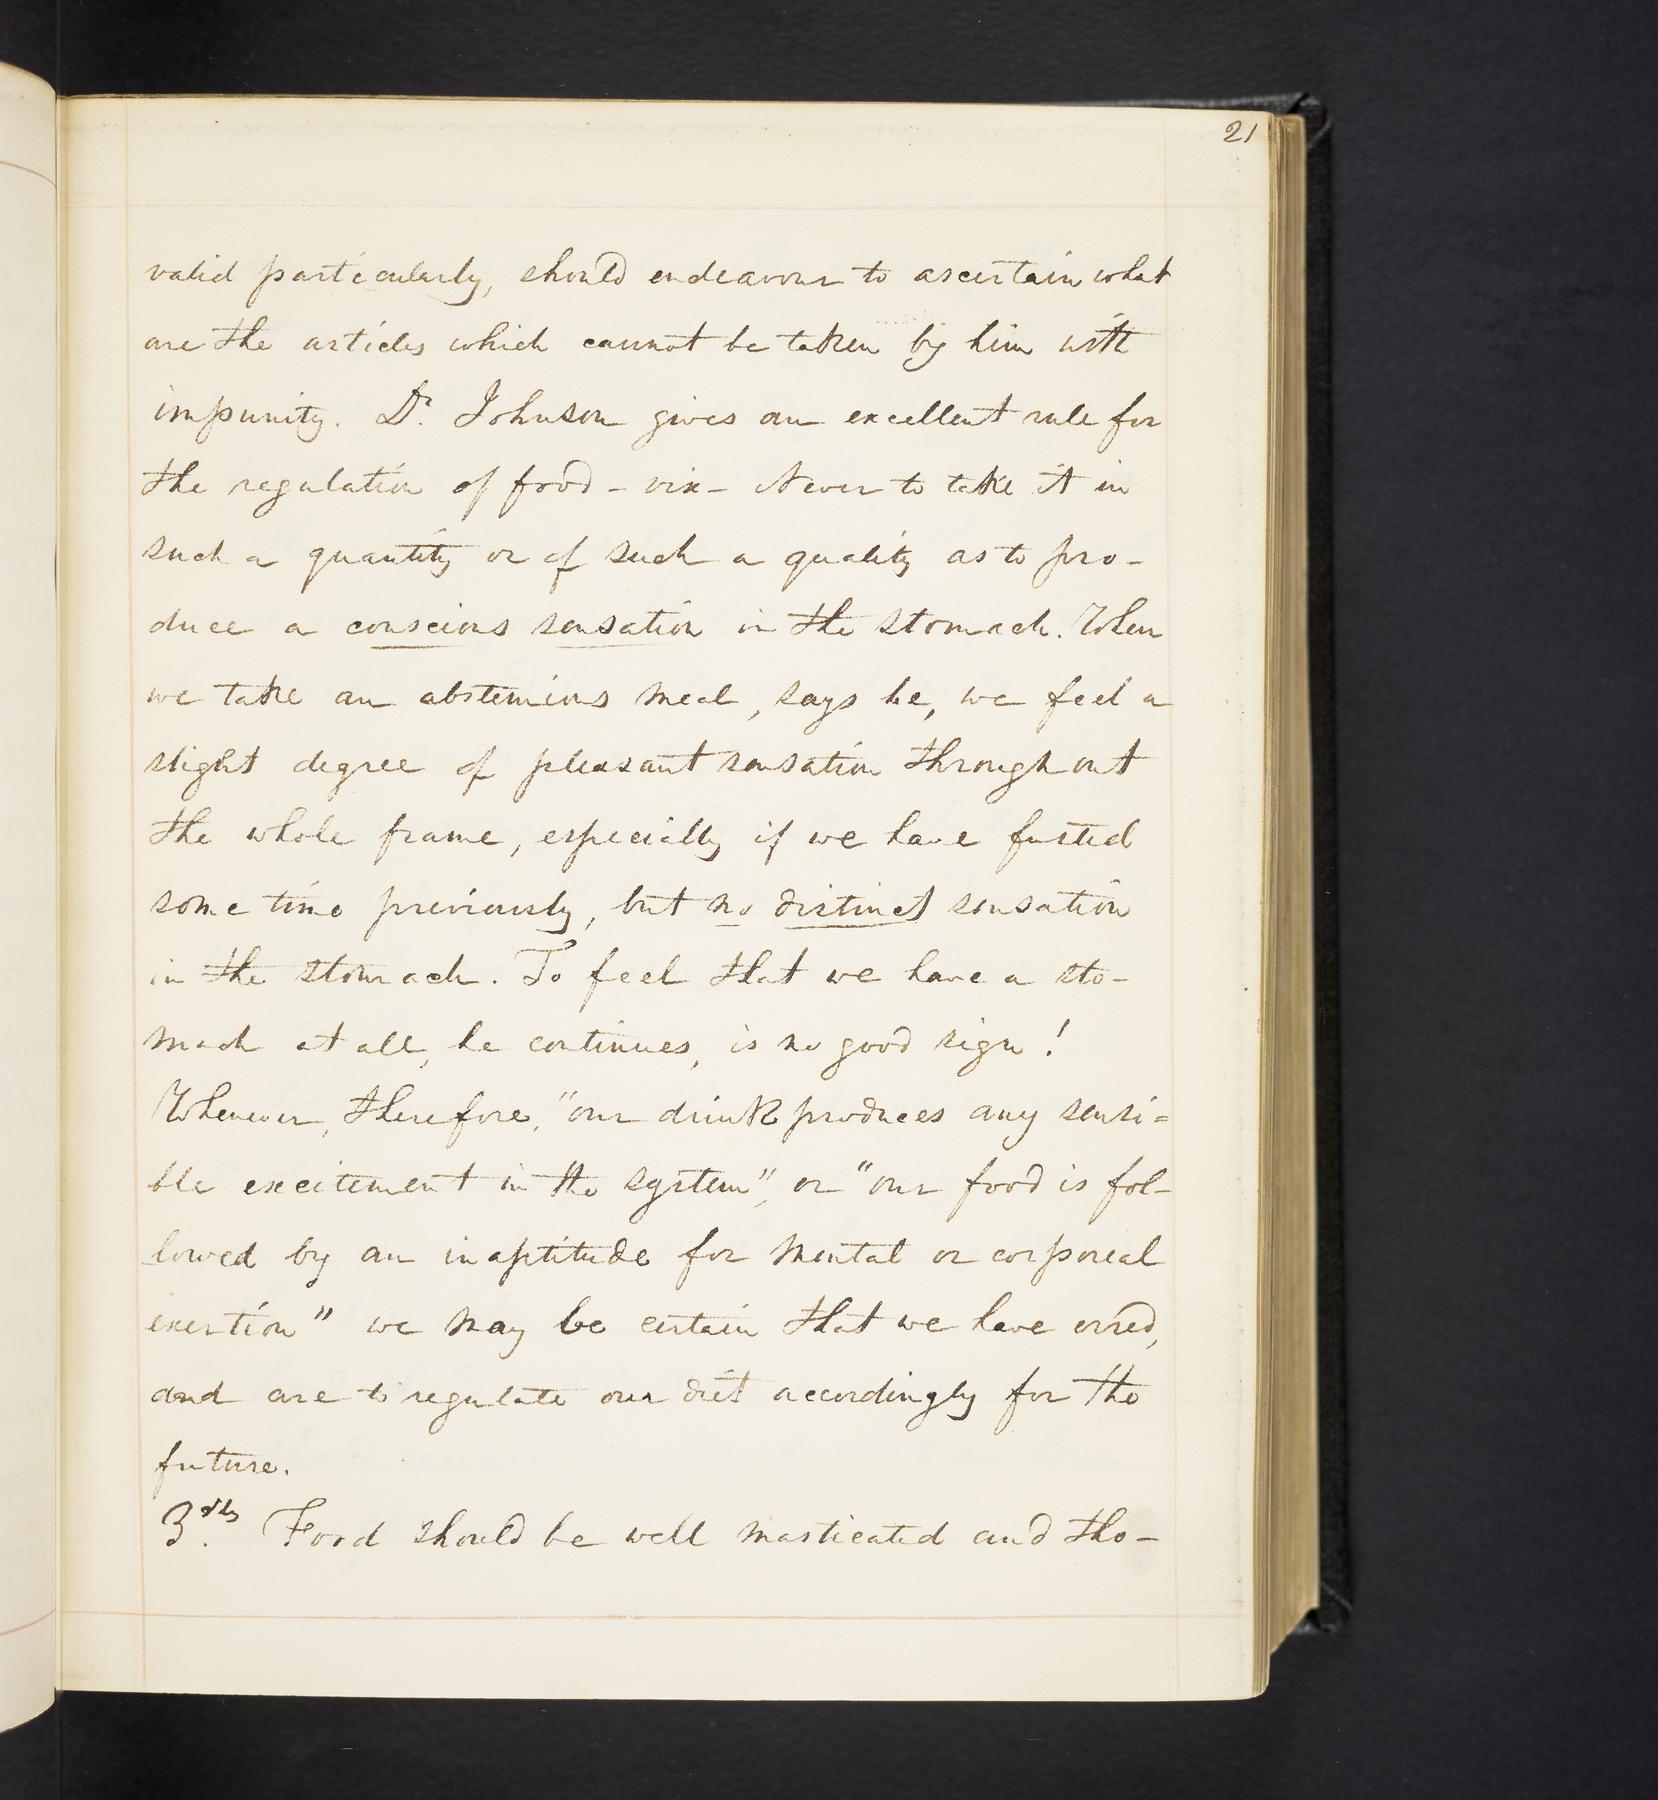 21
valid particularly, should endeavour to ascertain what
are the articles which cannot be taken by him with
impunity. Dr. Johnson gives an excellent rule for
the regulation of food - viz - Never to take it in
such a quantity or of such a quality as to pro-
duce a conscious sensation in the stomach. When
we take an abstemious meal, says he, we feel a
slight degree of pleasant sensation throughout
the whole frame, especially if we have fasted
some time previously, but no distinct sensation
in the stomach. To feel that we have a sto-
mach at all, he continues, is no good sign!
Whenever, therefore, "our drink produces any sensi=
ble excitement in the system", or "our food is fol-
lowed by an inaptitude for mental or corporeal
exertion" we may be certain that we have erred,
and are to regulate our diet accordingly for the
future.
3rdly. Food should be well masticated and tho-